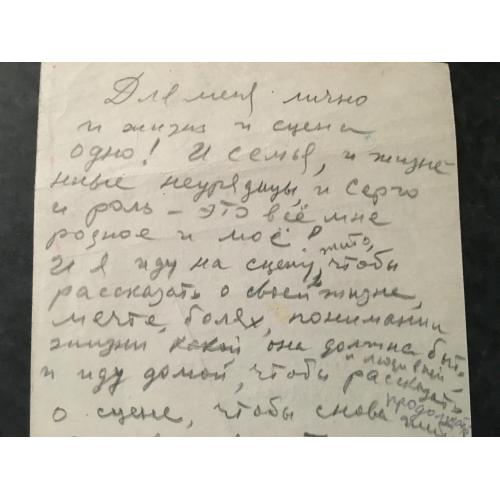 Для меня лично
и жизнь и сцена
одно! И семья, и жизне
нные неурядицы, и Серго
и роль – это всё мне
родное и моё!
И я иду на сцену, чтобы
рассказать о своей жизне,
мечте, болях, понимании
жизни какой она должна быть
и людей
и иду домой, чтобы рассказать
о сцене, чтобы снова
продолжать